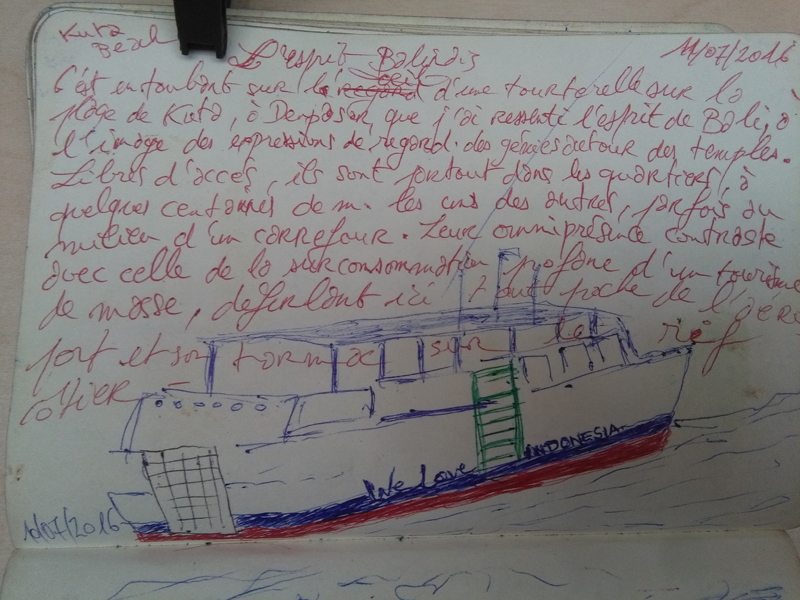 Kuta
Beach
L'esprit Balinais
11/07/2016
C'est en tombant sur l'oeil d'une tourterelle sur la
plage de Kuta, à Denpasar, que j'ai ressenti l'esprit de Bali, à
l'image des expressions de regard des génies autour des temples.
Libres d'accès, ils sont partout dans les quartiers, à
quelques centaines de m. les uns des autres, parfois au
milieu d'un carrefour. Leur omniprésence contraste
avec celle de la surconsommation profane d'un tourisme
de masse, déferlant ici tout proche de l'aéro
port et son tarmac sur le récif
côtier -
We love INDONESIA
10/07/2016